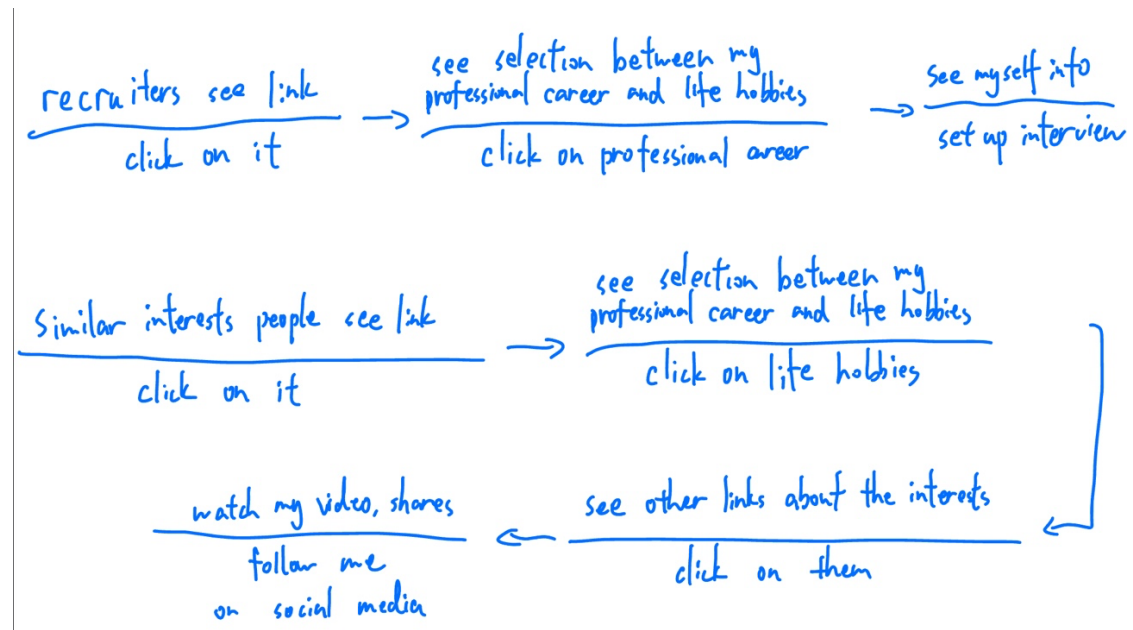 recruiters see link
click on it
see selection between my
professional career and life hobbies
click on professional career
see myself info
set up interview
Similar interests people see link
click on it
see selection between my
professional career and life hobbies
click on life hobbies
see other links about the interests
click on them
watch my video, shares
follow me
on social media